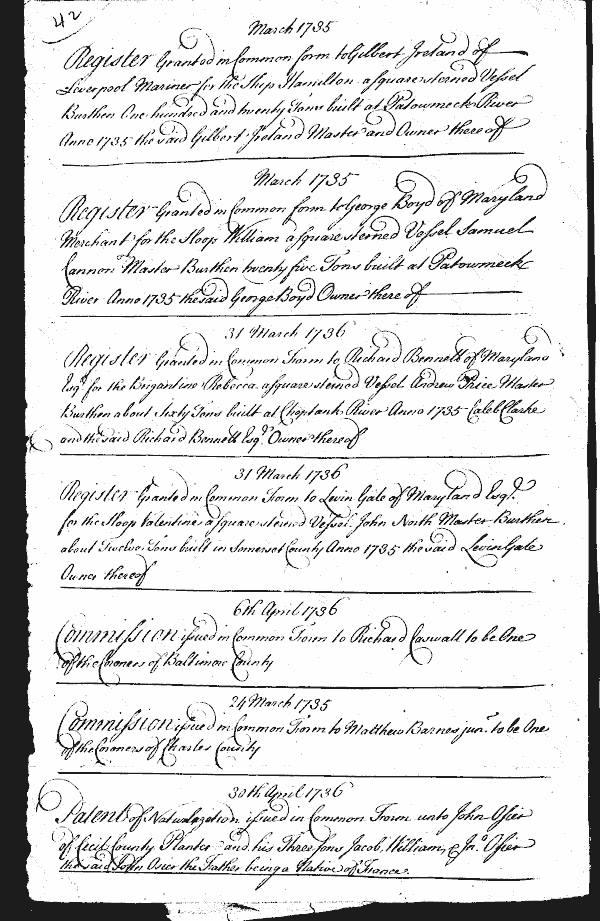 42
March 1735
Register Granted in Common form to Gilbert Ireland of
Liverpool Mariner for the Ship Hamilton a square sterned Vessel
Burthen One hundred and twenty Tons built at Patowmeck River
Anno 1735 the said Gilbert Ireland Master and Owner thereof
March 1735
Register Granted in Common form to George Boyd of Maryland
Merchant for the Sloop William a square sterned Vessel Samuel
Cannon Master Burthen twenty five Tons built at Patowmeck
River Anno 1735 the said George Boyd Owner thereof
31 March 1736
Register Granted in Common Form to Richard Bennett of Maryland
Esqr. for the Brigantine Rebecca a square sterned Vessel Andrew Price Master
Burthen about Sixty Tons built at Choptank River Anno 1735 Caleb Clarke
and the said Richard Bennett Esqr. Owner thereof
31 March 1736
Register Granted in Common Form to Levin Gale of Maryland Esqr.
for the Sloop Valentine a square sterned Vessel John North Master Burthen
about Twelve Tons built in Somerset County Anno 1735 the said Levin Gale
Owner thereof
6th April 1736
Commission issued in Common Form to Richard Caswall to be One
of the Coroners of Baltimore County
24 March 1735
Commission issued in Common Form to Matthew Barnes junr. to be One
of the Coroners of Charles County
30th April 1736
Patent of Naturalization issued in Common Form unto John Osier
of Cecil County Planter and his Three Sons Jacob, William, & Jno. Osier
the said John Osier the Father being a Native of France